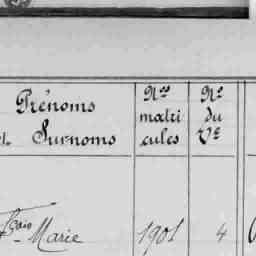 Prénoms
et Surnoms
Nos
matri
cules
No
du
Ve
fçois Marie
1901
4